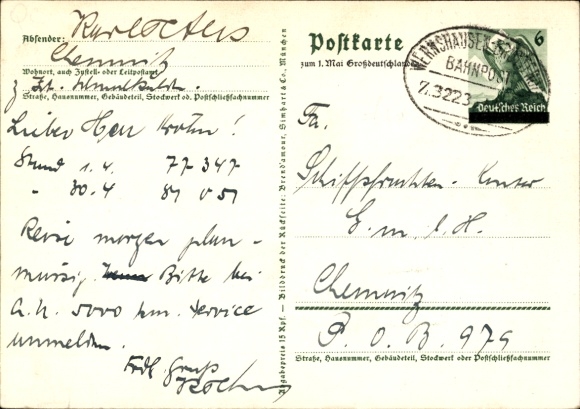 Absender: Karl
Chemnitz
Wohnort, auch Zustell- oder Leitpostamt
z. Zt. Schmalkalden
Straße, Hausnummer, Gebäudeteil, Stockwerk od. Postschließfachnummer
Lieber Herr !
Stand 1.4. 77 347
" 30.4 81 051
Reise morgen plan-
mässig. Bitte bei
A.H. 5000 km. Service
anmelden.
Frdl. Gruß
Abgabepreis 15 Rpf. — Bilddruck der Rückseite: Brend'amour, Simhart & Co., München
Postkarte
zum 1. Mai Großdeutschland
6
Deutsches Reich
WERNSHAUSEN
BAHNPOST
Z.3223
Fa.
Schiffsfrachten-Kontor
G.m.b.H.
Chemnitz
P.O.B. 979
Straße, Hausnummer, Gebäudeteil, Stockwerk oder Postschließfachnummer